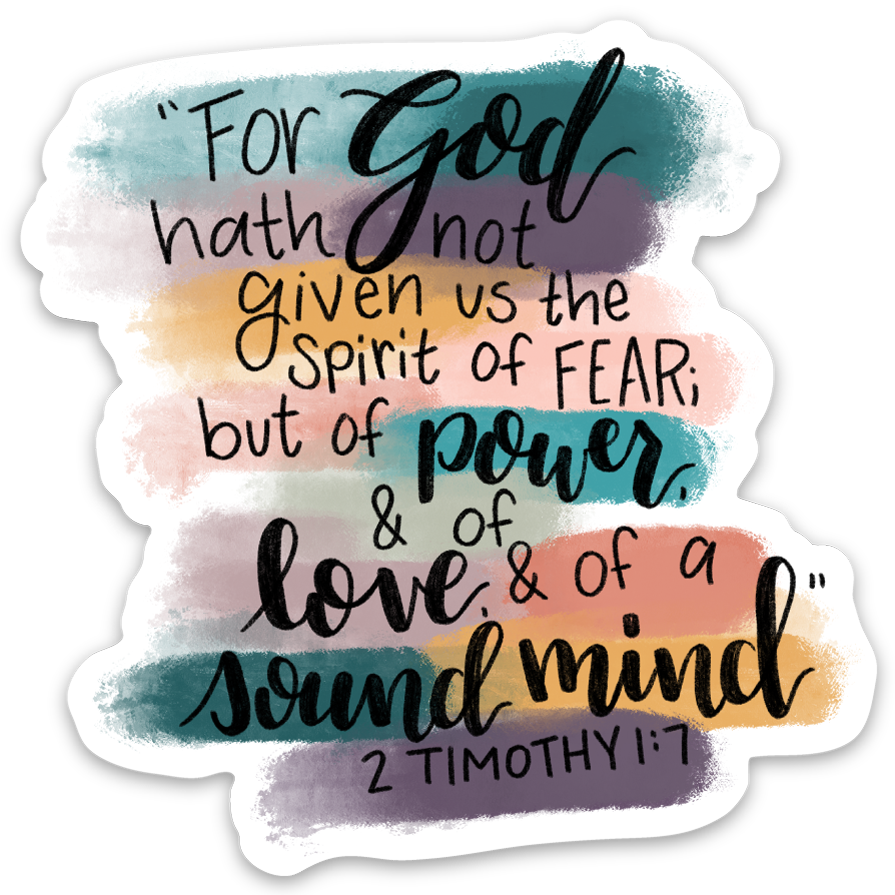 "For God
hath not
given us the
spirit of FEAR;
but of power,
& of
love, & of a
sound mind"
2 TIMOTHY 1:7